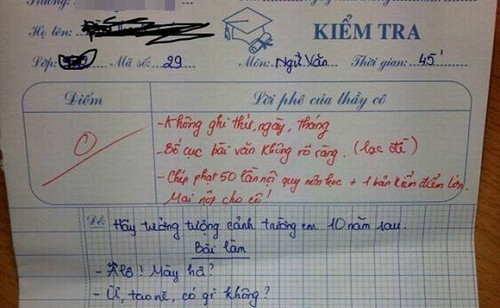 Trường:
Họ tên: KIỂM TRA
Lớp: Mã số: 29 Môn: Ngữ Văn Thời gian: 45'
Điểm Lời phê của thầy cô
0
- Không ghi thứ, ngày, tháng
- Bố cục bài văn không rõ ràng. (lạc đề)
- Chép phạt 50 lần nội quy môn học + 1 bản kiểm điểm lớn.
Mai nộp cho cô!
Đề: Hãy tưởng tượng cảnh trường em 10 năm sau.
Bài làm
- Alô! Mày hả?
- Ừ, tao nè, có gì không?